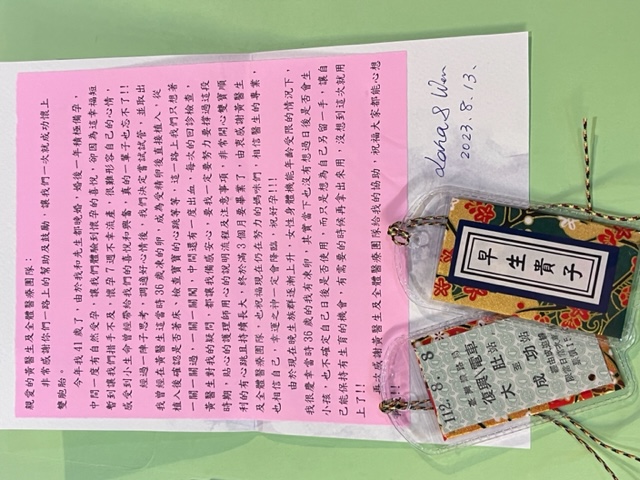 親愛的黃醫生及全體醫療團隊：
非常感謝你們一路上的幫助及鼓勵，讓我們一次就成功懷上
雙胞胎。
今年我41歲了，由於我和先生都晚婚，婚後一年積極備孕，
中間一度有自然受孕，讓我們體驗到懷孕的喜悅，卻因為這幸福短
暫到讓我們措手不及，懷孕7週不幸流產，很難形容自己的心情，
感受到小生命曾經帶給我們的喜悅和興奮，真的一輩子也忘不了!!
經過一陣子思考，調適好心情後，我們決定嘗試試管，並取出
我曾經在黃醫生這當時36歲凍的卵，成為受精卵後直接植入，從
植入後確認是否著床、檢查寶寶的心跳等等，這一路上我們只想著
一關一關過，一關一關闖，中間還有一度出血，每次的回診檢查，
黃醫生對我的疑問，都讓我備感安心，要我一定要努力要撐過這段
時期，貼心的護理師用心的說明流程及注意事項，非常開心雙寶順
利的有心跳且持續長大，終於滿3個月要畢業了，由衷感謝黃醫生
及全體醫療團隊，也祝福現在仍在努力的媽咪們，相信醫生的專業，
也相信自己，幸運之神一定會降臨，祝好孕!!!
由於現在晚生族群逐漸上升，女性身體機能年齡受限的情況下，
我很慶幸當時36歲的我有凍卵，其實當下也沒有想過日後是否會生
小孩，也不確定自己日後是否使用，而只是想為自己另留一手，讓自
己能保持有生育的機會，有需要的時候再拿出來用，沒想到這次就用
上了!!
再次感謝黃醫生及全體醫療團隊給我的協助，祝福大家都能心想
!!
2023.8.13.
112.8.8
復興\電車
大肚站
至
成功站
早生貴子